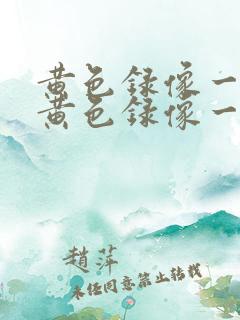 黄色録像一
黄色録像一
趙萍
未经同意禁止转载